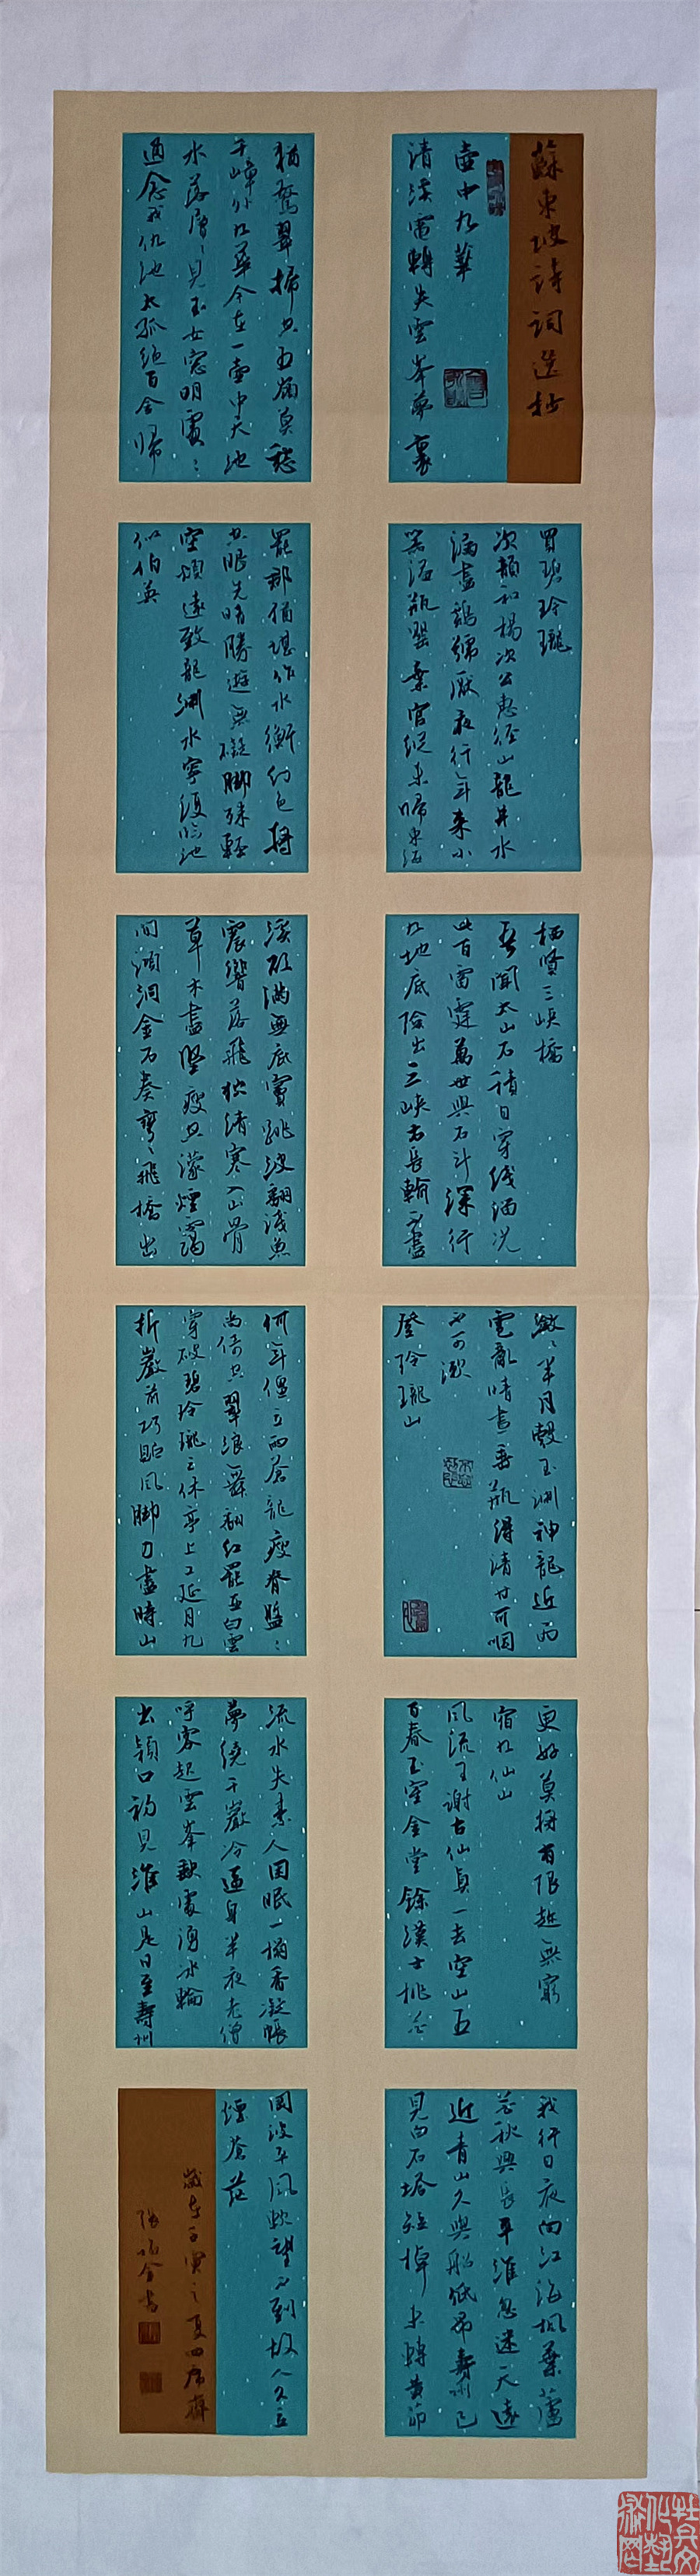 蘇東坡詩詞選抄
壺中九華
清溪電轉失雲峰夢裏
猶驚翠掃空五嶺莫愁
千嶂外九華今在一壺中天池
水落層〻見玉女窗明處〻
通念我仇池太孤絕百金歸
買碧玲瓏
次韻和楊次公惠徑山龍井水
漏盡鷄號厭夜行年來小
器溺瓶罌棄官縱未歸東海
罷郡猶堪作水衡幻色將
空眼先暗勝遊無礙脚殊輕
空煩遠致龍淵水寧復臨池
似伯英
栖賢三峽橋
吾聞太山石積日穿綫溜況
此百雷霆萬世與石鬥深行
九地底險出三峽右長輸不盡
溪欲滿無底竇跳波翻潛魚
震響落飛狖清寒入山骨
草木盡堅瘦空濛煙靄
間澒洞金石奏彎〻飛橋出
瀲〻半月彀玉淵神龍近雨
電亂晴晝垂瓶得清甘可咽
不可漱
登玲瓏山
何年僵立兩蒼龍瘦脊盤〻
尚倚空翠浪舞翻紅罷亞白雲
穿破碧玲瓏三休亭上工延月九
折巖前巧貯風脚力盡時山
更好莫將有限趂無窮
宿九仙山
風流王謝古仙真一去空山五
百春玉室金堂餘漢士桃花
流水失秦人困眠一榻香凝帳
夢繞千巖冷逼身半夜老僧
呼客起雲峰缺處湧冰輪
出潁口初見淮山是日至壽州
我行日夜向江海楓葉蘆
花秋興長平淮忽迷天遠
近青山久與船低昂壽州已
見白石塔短棹未轉黃茆
岡波平風軟望不到故人久立
煙蒼茫
歲在壬寅之夏四席齋